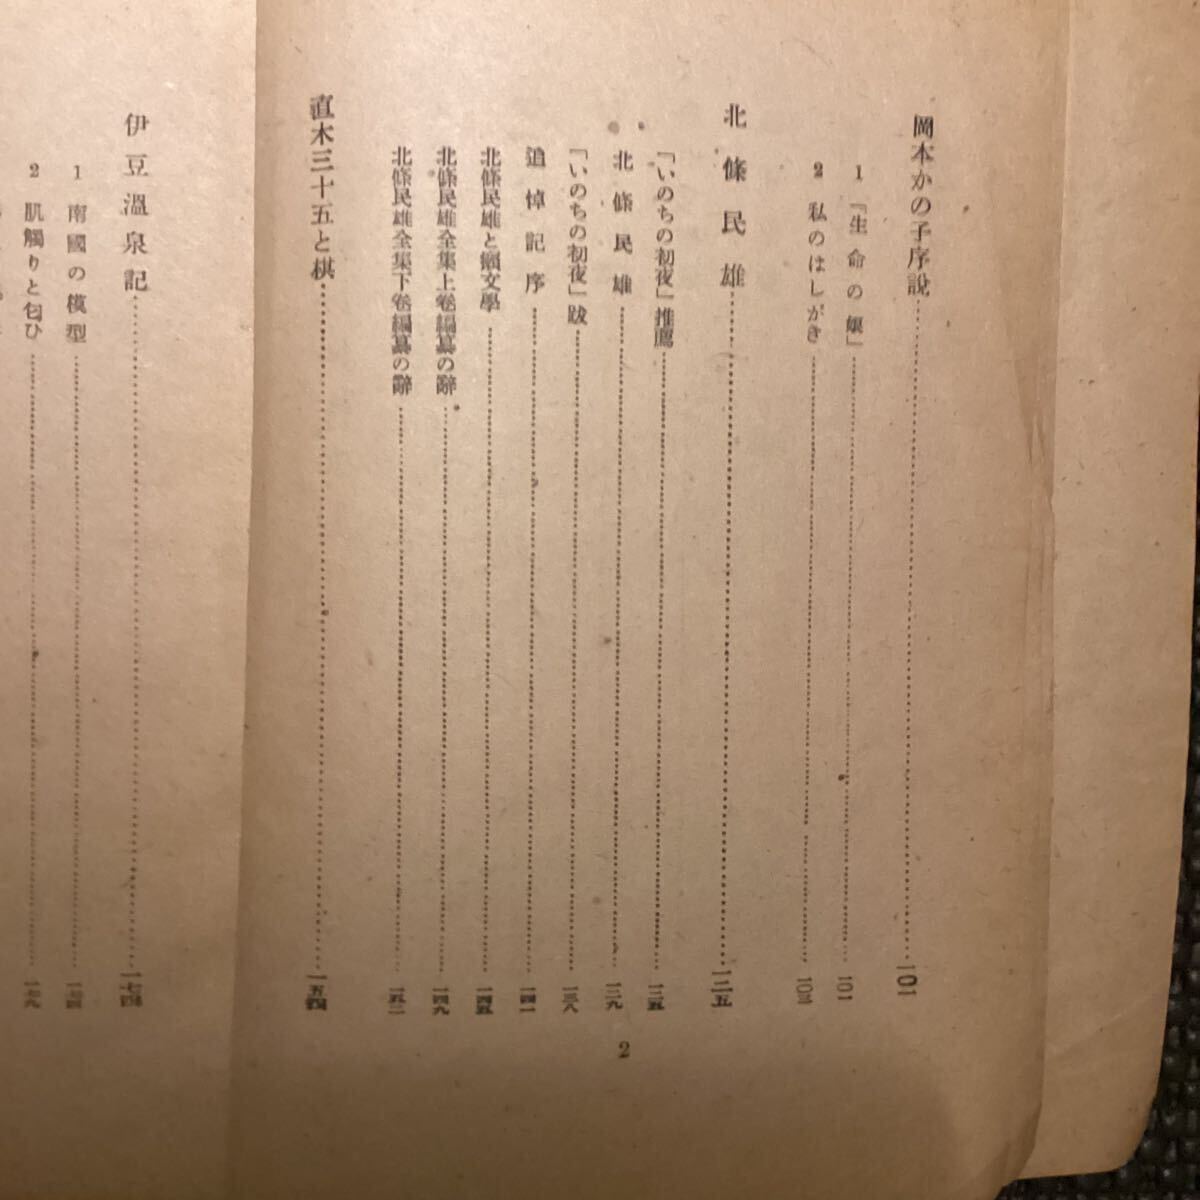 岡本かの子序說……一〇一
1 「生命の娘」……一〇一
2 私のはしがき……一〇三
北條民雄……一二五
「いのちの初夜」推薦……一二五
北條民雄……一二九
「いのちの初夜」跋……一三八
追悼記序……一四一
北條民雄と癩文學……一四五
北條民雄全集上卷編纂の辭……一四九
北條民雄全集下卷編纂の辭……一五二
直木三十五と棋……一五四
2
伊豆溫泉記……一七四
1 南國の模型……一七四
2 肌觸りと匂ひ……一七九